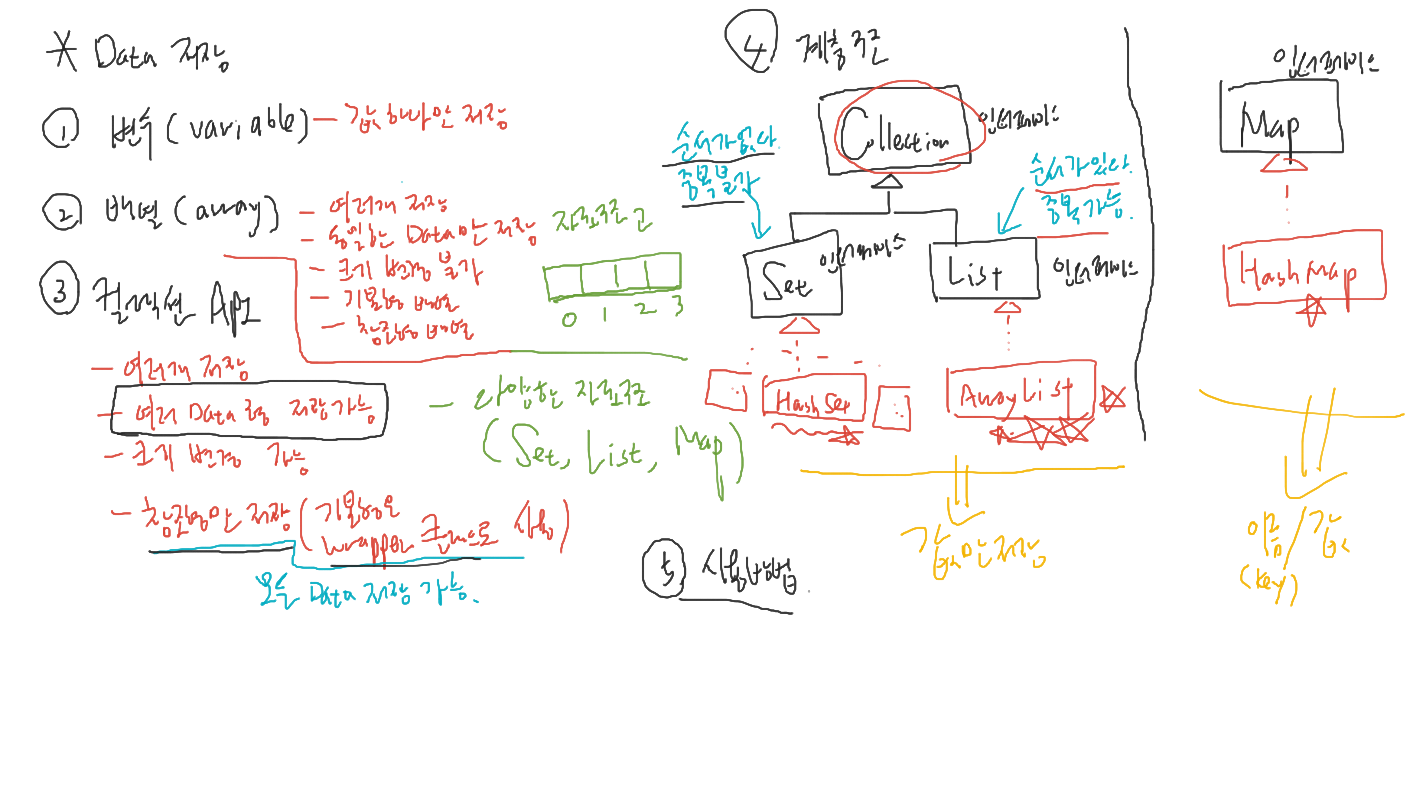 * Data 저장
① 변수 (variable) - 값 하나만 저장
② 배열 (array)
- 여러개 저장
- 동일한 Data만 저장
- 크기 변경 불가
- 기본형 배열
- 참조형 배열
자료구조
0 1 2 3
③ 컬렉션 API
- 여러개 저장
- 여러 Data형 저장 가능
- 크기 변경 가능
- 참조형만 저장 (기본형은
wrapper 클래스로 사용)
모든 Data 저장 가능.
- 다양한 자료구조
(Set, List, Map)
④ 계층구조
Collection
인터페이스
순서가 없다.
중복 불가
순서가 있다.
중복 가능.
Set
인터페이스
List
인터페이스
HashSet
ArrayList
값만 저장
인터페이스
Map
HashMap
이름/값
(key)
⑤ 사용방법.